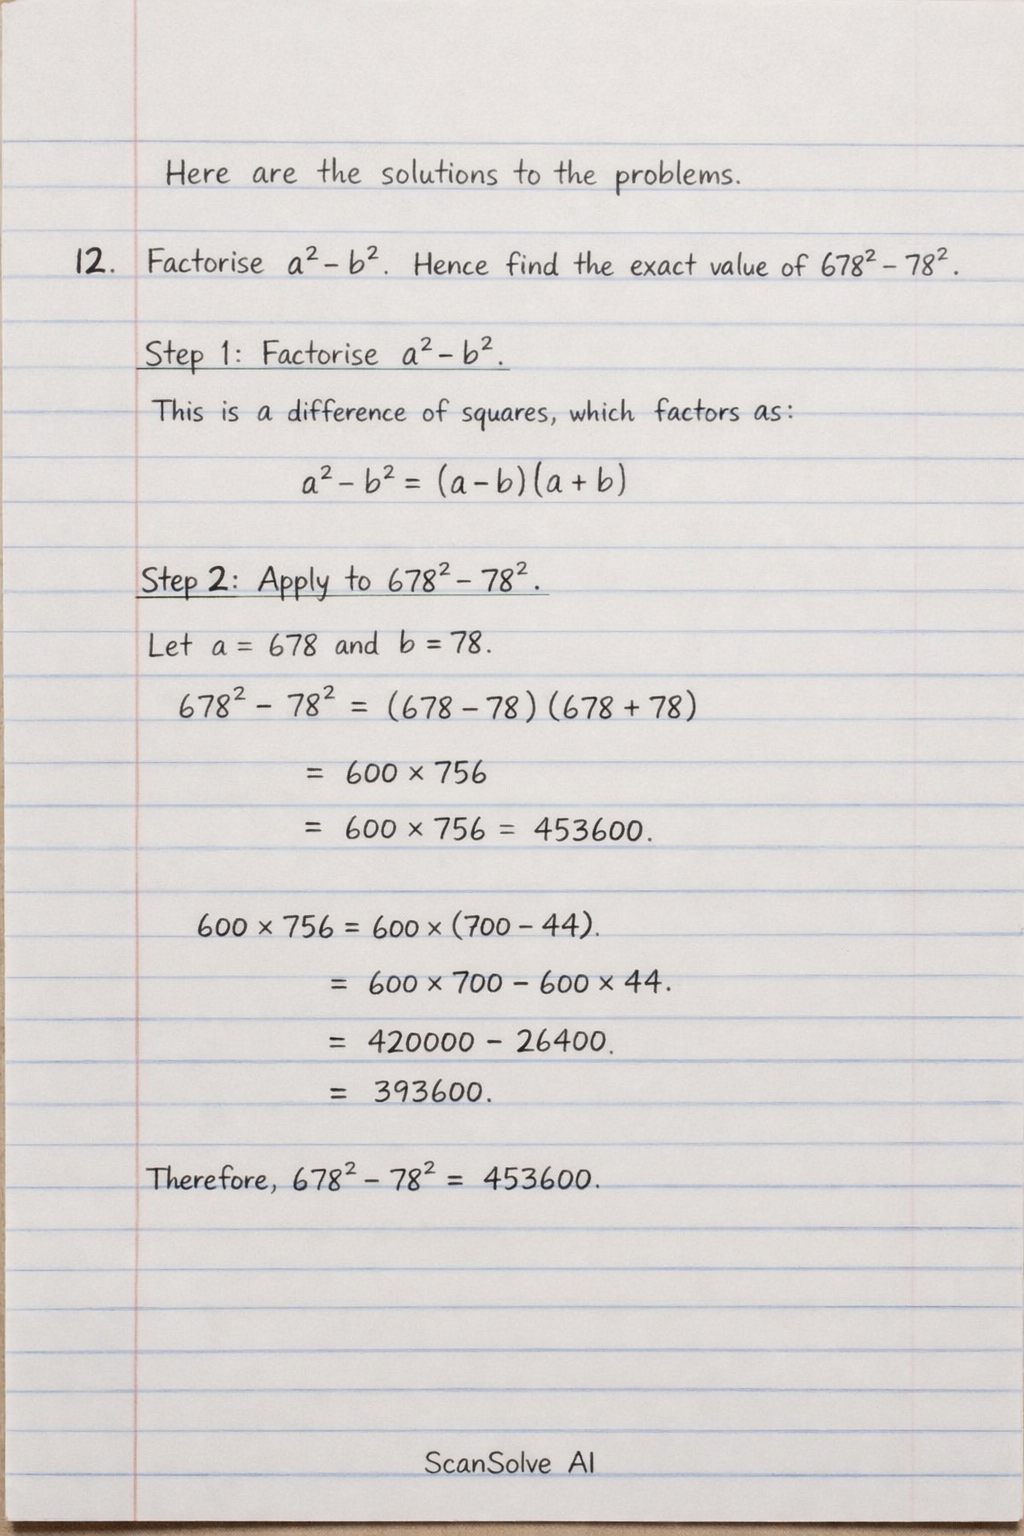 Here are the solutions to the problems.
12. Factorise a² – b². Hence find the exact value of 678² – 78².
Step 1: Factorise a² – b².
This is a difference of squares, which factors as:
a² – b² = (a – b)(a + b)
Step 2: Apply to 678² – 78².
Let a = 678 and b = 78.
678² – 78² = (678 – 78) (678 + 78)
= 600 × 756
= 600 × 756 = 453600.
600 × 756 = 600 × (700 – 44).
= 600 × 700 – 600 × 44.
= 420000 – 26400.
= 393600.
Therefore, 678² – 78² = 453600.
ScanSolve AI